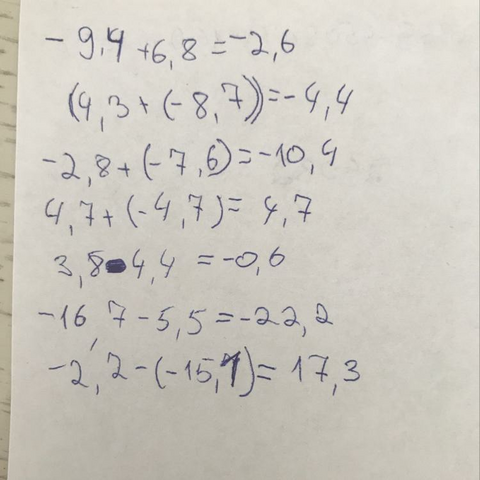 -9,4+6,8=-2,6
(4,3+(-8,7))=-4,4
-2,8+(-7,6)=-10,4
4,7+(-4,7)=4,7
3,8-4,4=-0,6
-16,7-5,5=-22,2
-2,2-(-15,1)=17,3